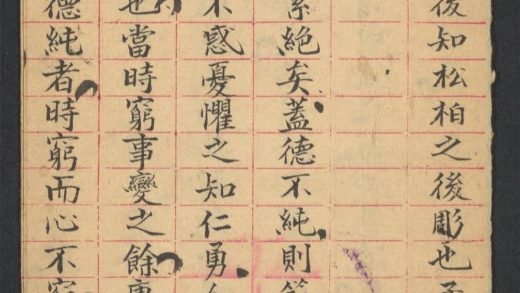 後知松柏之後彫也
絶矣蓋德不純則
不惑憂懼之知仁勇
也當時窮事變之餘
德純者時窮而心不窮